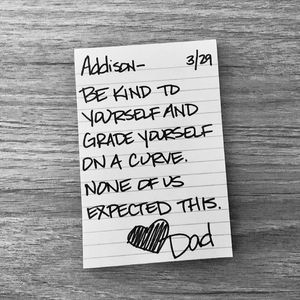 Addison- 3/29
BE KIND TO
YOURSELF AND
GRADE YOURSELF
ON A CURVE.
NONE OF US
EXPECTED THIS.
Dad